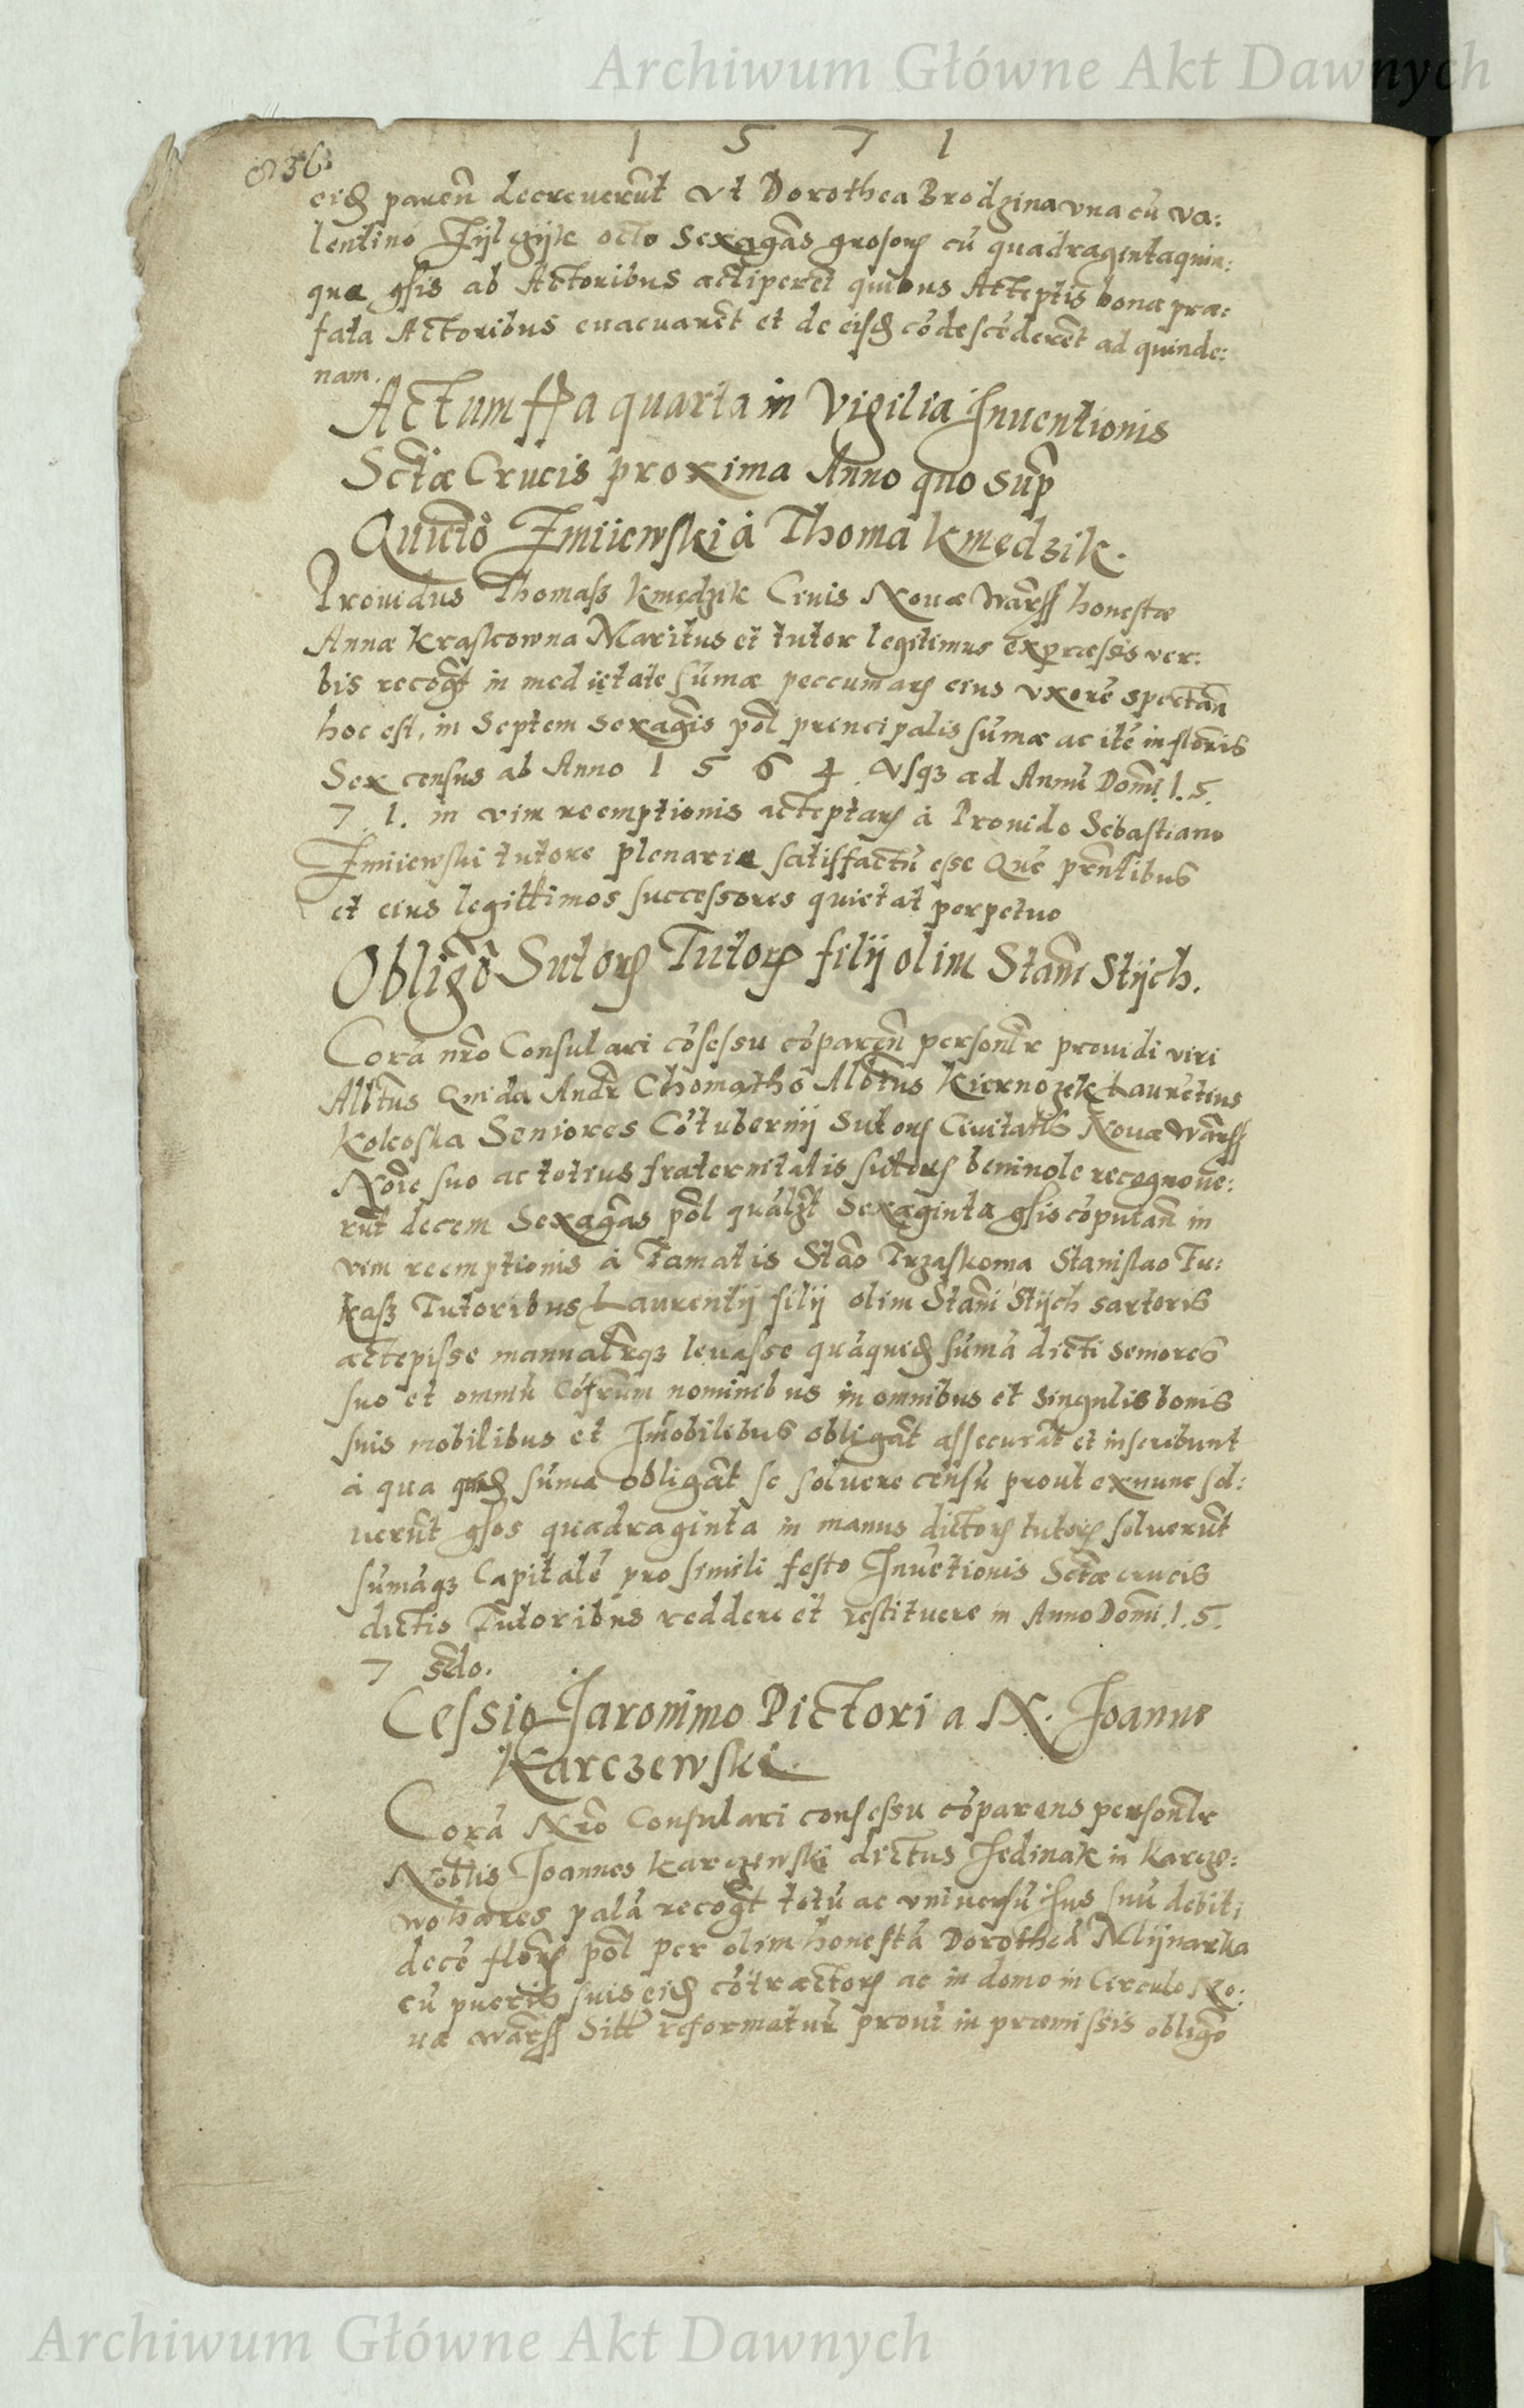 Archiwum Główne Akt Dawnych
1 5 7 1
836
eisdē parēn decreuerūt Vt Dorothea Brodzina vna cū va:
lentino octo Sexagēas grosorȝ cū quadraginta quin:
que gsis ab Actoribus acciperēt quibus Acceptis bona præ:
fata Actoribus euacuarēt et de eisdē cōdescēderēt ad quinde:
nam.
Actum ffa quarta in Vigilia Inuentionis
Sctæ Crucis proxima Anno quo sup
Quictō Zmiiewski à Thoma Kmędzik.
Prouidus Thomass Kmędzik Ciuis Nouæ Warss honestæ
Annæ Kraskowna Maritus et tutor legitimus expressis ver:
bis recogt in medietate sūmæ peccuniarȝ eius vxorē spectān
hoc est, in Septem sexagīs pol principalis sūmæ ac itē in florīs
Sex census ab Anno 1 5 6 4 vsqȝ ad Annū Domi 1.5.
7.1. in vim reemptionis acceptarȝ à Prouido Sebastiano
Zmiiewski tutore plenarie satisfactū esse Quē prntibus
et eius legittimos successores quietat perpetuo
Obligō Sutorȝ Tutorȝ filij olim Stani Stijch.
Corā nrō Consulari cōsessu cōparēn persontr prouidi viri
Albtus Andr Albtus Kiernozek Laurētius
Koleoska Seniores Cōtubernij Sutorȝ Ciuitatis Nouæ Warss
Noīe suo ac totius fraternitatis sutorȝ beniuole recognoue:
rūt decem Sexagēas pol quālȝt Sexaginta gsis cōputān in
vim reemptionis à Famatis Stāo Trzaskoma Stanislao Tu:
kass Tutoribus Laurentij filij olim Stani Stijch sartoris
accepisse manualrqȝ leuasse quāquidē sūmā dicti seniores
suo et omniū Cōfrūm nominibus in omnibus et singulis bonis
suis mobilibus et Imobilibus obligāt assecurāt et inscribunt
à qua quidē sūma obligāt se soluere cēnsū prout exnunc sol:
uerūt gsos quadraginta in manus dictorȝ tutorȝ soluerūt
sūmāqȝ Capitalē pro simili festo Inuētionis Sctæ crucis
dictis Tutoribus reddere et restituere in Anno Domi 1.5.
7 sēdo.
Cessio Jaronimo Pictori a N. Joanne
Karczewski
Corā Nrō Consulari consessu cōparens persontr
Nobilis Joannes Karczewski dictus Jedinak in Karcze:
wo hæres palā recogt totū ac vniuersū Ius suū debiti
decē florȝ pol per olim honestā Dorotheā Mlijnarka
cū pueris suis eidē cōtractorȝ ac in domo in Circulo No:
uæ Warss Sitt reformatur prout in præmissis obligō
Archiwum Główne Akt Dawnych